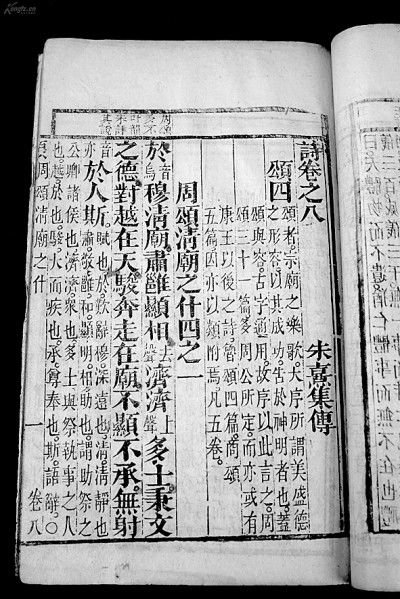 Kongfz.cn
周頌
多不
叶韻
未詳
其說
詩卷之八 朱熹集傳
頌四 頌者。宗廟之樂歌。大序所謂美盛德
之形容。以其成功。告於神明者也。蓋
頌與容。古字通用。故序以此言之。周
頌三十一篇。多周公所定。而亦或有
康王以後之詩。魯頌四篇。商頌
五篇。因亦以類附焉。凡五卷。
周頌清廟之什四之一
於音烏穆清廟肅雝顯相去聲濟濟上聲多士秉文
之德對越在天駿奔走在廟不顯不承無射
音亦於人斯。賦也。於。歎辭。穆。深遠也。清。清靜也
肅。敬。雝。和。顯。明。相。助也。謂助祭之
公卿諸侯也。濟濟。衆也。多士。與祭執事之人
也。越。於也。駿。大而疾也。承。尊奉也。斯。語辭。○
周頌清廟之什 一 卷八